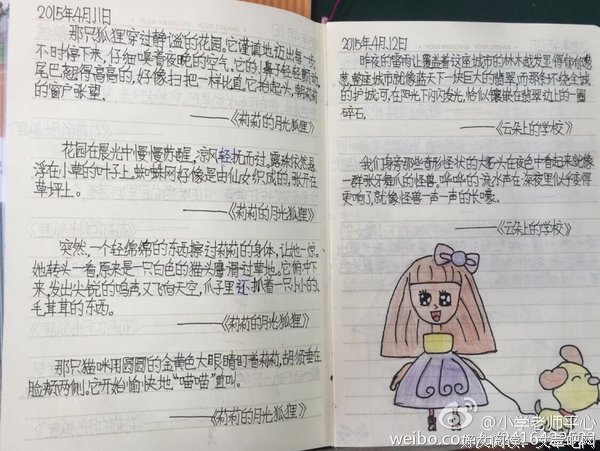 2015年4月11日
那只狐狸穿过静谧的花园,它谨慎地迈出每一步,
不时停下来,仔细嗅着夜晚的空气,它的小鼻子轻轻颤动,
尾巴翘得高高的,好像扫把一样比直,它抬起头,朝莉莉
的窗户张望。
——《莉莉的月光狐狸》
花园在晨光中慢慢苏醒,凉风轻抚而过,露珠依然悬
浮在小草的叶子上。蜘蛛网好像是由仙女织成的,张开在
草坪上。
——《莉莉的月光狐狸》
突然,一个轻绵绵的东西擦过莉莉的身体,让她一惊。
她转头一看,原来是一只白色的猫头鹰滑过草地。它俯冲下
来,发出尖锐的鸣声,又飞向天空,爪子里还抓着一只小小的、
毛茸茸的东西。
——《莉莉的月光狐狸》
那只猫咪用圆圆的金黄色大眼睛盯着莉莉,胡须垂在
脸颊两侧,它开始愉快地“喵喵”直叫。
——《莉莉的月光狐狸》
2015年4月12日
昨夜的雷雨让覆盖着这座城市的林木越发显得郁郁葱
葱,整座城市就像蓝天下一块巨大的翡翠,而那条环绕全城
的护城河,在阳光下闪闪发光,恰似镶嵌在翡翠边上的一圈
碎石。
——《云朵上的学校》
我们身旁那些奇形怪状的大石头在夜色中看起来就像
一群张牙舞爪的怪兽,哗哗的流水声在深夜里似乎变得
更响了,就像怪兽一声一声的长嚎。
——《云朵上的学校》
@小学老师平心
weibo.com/